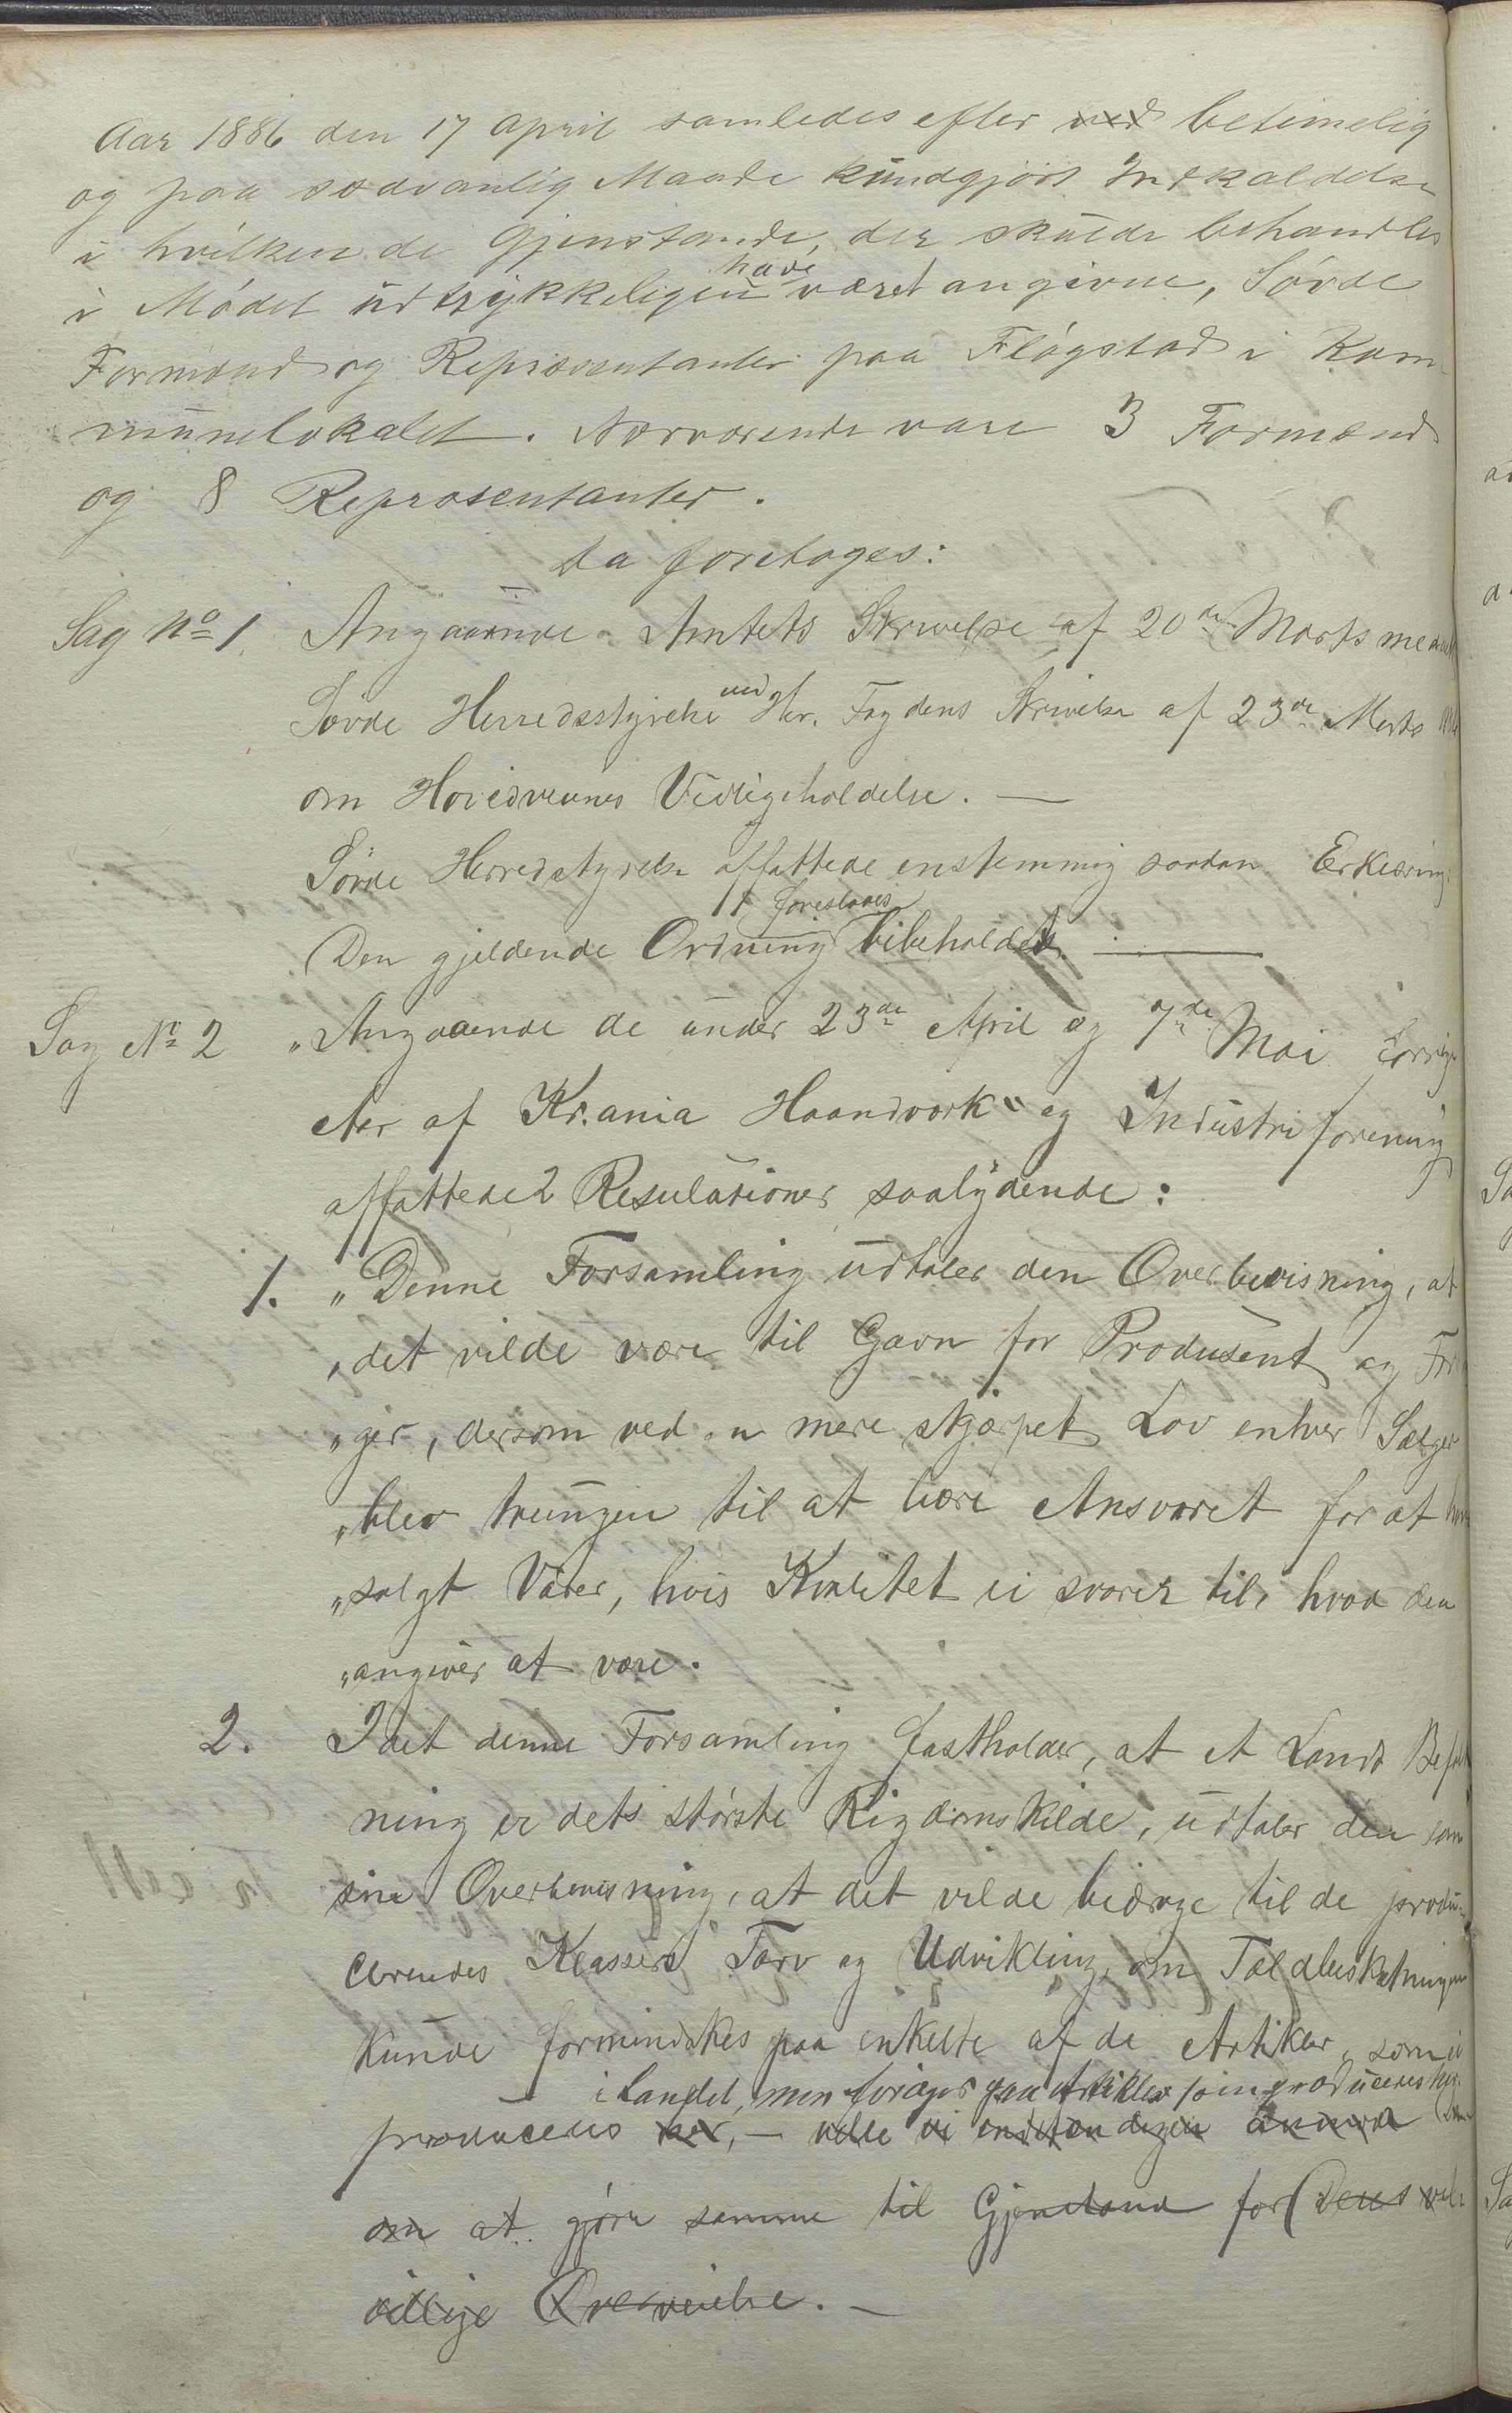 Aar 1886 den 17 April samledes efter ved betimelig
og paa sædvanlig Maade kundgjört Indkaldelse
i hvilken de Gjenstande, der skulde behandles
i Mödet udtrykkeligen have været angivne, Sövde
Formænd og Repræsentanter paa Flögstad i Kom-
munelokalet. Nærværende vare 3 Formænd
og 8 Repræsentanter.
da foretoges:
Sag No 1. Angaaende Amtets Skrivelse af 20de Marts
Sövde Herredsstyrelse ved Hr. Fogdens Skrivelse af 23de Marts
om Hovedveienes Vedligeholdelse. —
Sövde Herredstyrelse affattede enstemmig saadan Erklæring:
foreslaaes
Den gjeldende Ordning bibeholdt. —
Sag No 2 „Angaaende de under 23de April og 7de Mai
af Kr.ania Haandværk- og Industriforening
affattede 2 Resulationer saalydende:
1. „Denne Forsamling udtaler den Overbevisning, at
„det vilde være til Gavn for Produsent og
„ger, dersom ved en mere skjærpet Lov enhver Sælger
„blev tvungen til at bære Ansvaret for at
„solgt Varer, hvis Kvalitet ei svarer til, hvad den
„angiver at være.
2. Idet denne Forsamling fastholder, at et Lands
ning er dets störste Rigdomskilde, udtaler den som
sin Overbevisning, at det vilde bidrage til de produ-
cerendes Klassers Tarv og Udvikling, om Toldbeskatningen
kunde formindskes paa enkelte af de Artikler, som ei
i Landet, men foröges paa Artikler som produceres her.
produceres her, — ville vi indstændigen anmode
om at gjöre samme til Gjenstand for Deres
villige Overveielse. —